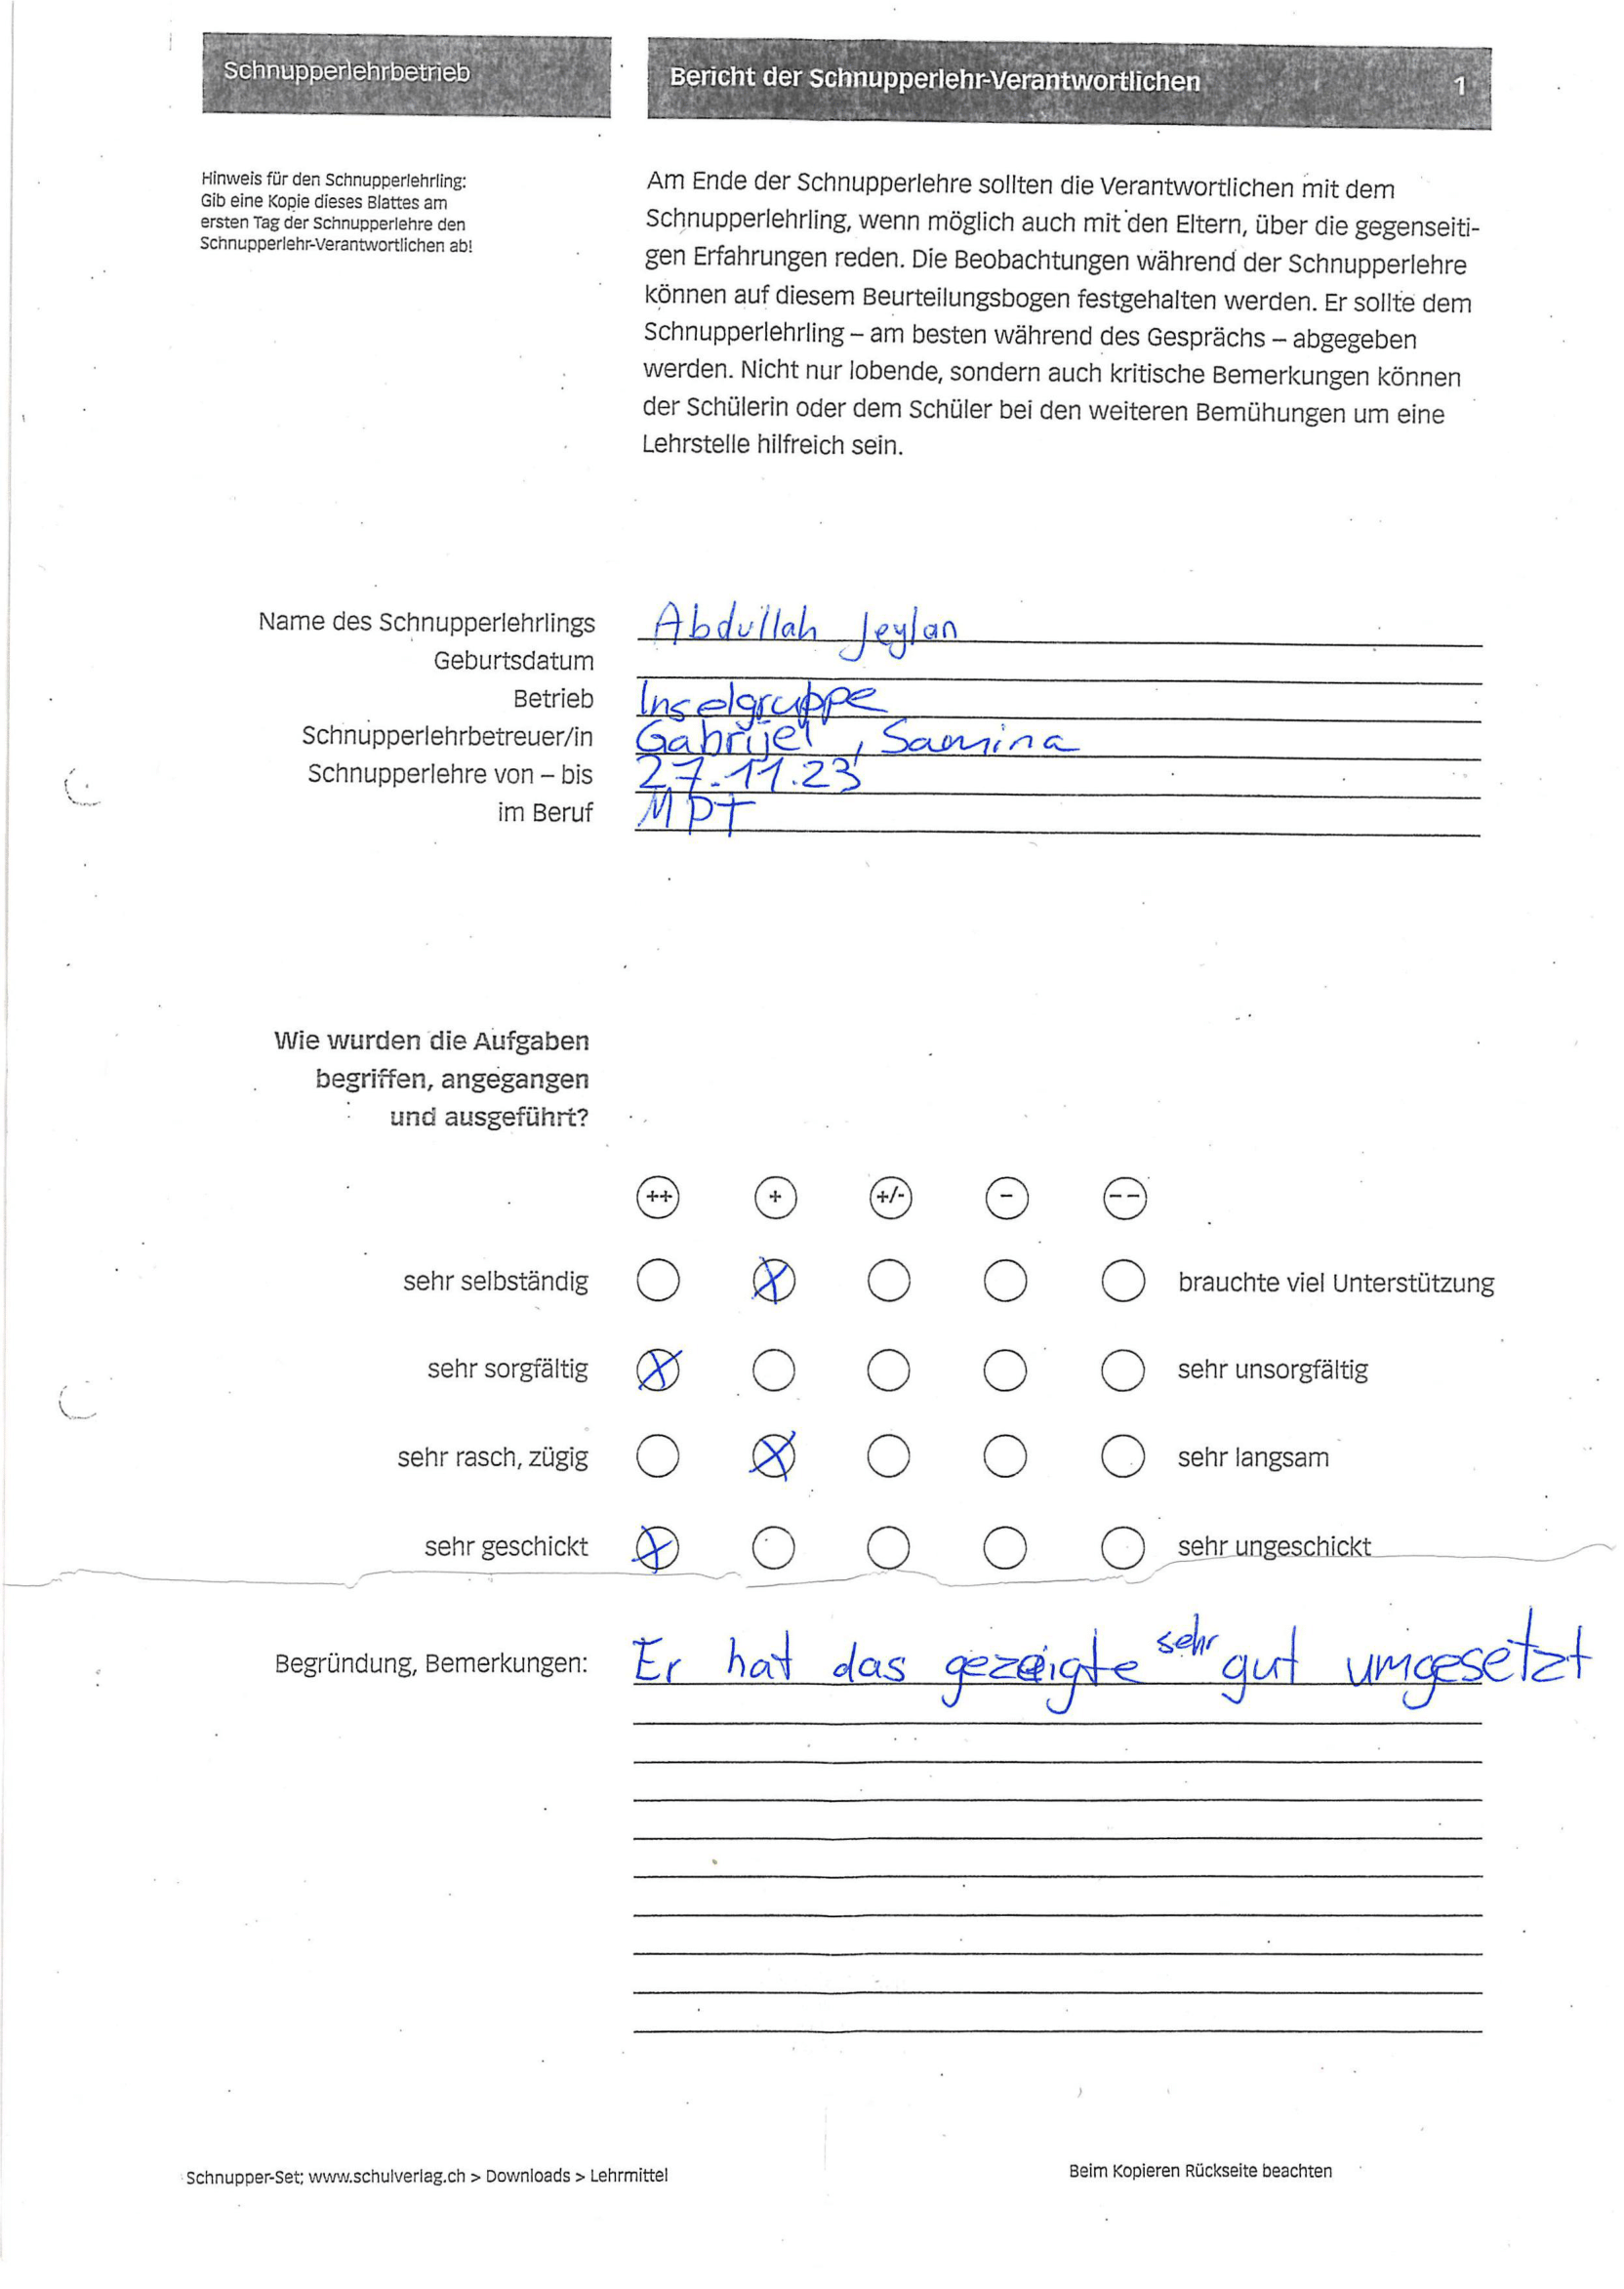 Schnupperlehrbetrieb
Bericht der Schnupperlehr-Verantwortlichen 1
Hinweis für den Schnupperlehrling:
Gib eine Kopie dieses Blattes am
ersten Tag der Schnupperlehre den
Schnupperlehr-Verantwortlichen ab!
Am Ende der Schnupperlehre sollten die Verantwortlichen mit dem
Schnupperlehrling, wenn möglich auch mit den Eltern, über die gegenseiti-
gen Erfahrungen reden. Die Beobachtungen während der Schnupperlehre
können auf diesem Beurteilungsbogen festgehalten werden. Er sollte dem
Schnupperlehrling – am besten während des Gesprächs – abgegeben
werden. Nicht nur lobende, sondern auch kritische Bemerkungen können
der Schülerin oder dem Schüler bei den weiteren Bemühungen um eine
Lehrstelle hilfreich sein.
Name des Schnupperlehrlings Abdullah Jeylan
Geburtsdatum
Betrieb Inselgruppe
Schnupperlehrbetreuer/in Gabrijel, Samina
Schnupperlehre von – bis 27.11.23
im Beruf MPT
Wie wurden die Aufgaben
begriffen, angegangen
und ausgeführt?
++ + +/- – – –
sehr selbständig X brauchte viel Unterstützung
sehr sorgfältig X sehr unsorgfältig
sehr rasch, zügig X sehr langsam
sehr geschickt X sehr ungeschickt
Begründung, Bemerkungen: Er hat das gezeigte sehr gut umgesetzt
Schnupper-Set; www.schulverlag.ch > Downloads > Lehrmittel
Beim Kopieren Rückseite beachten